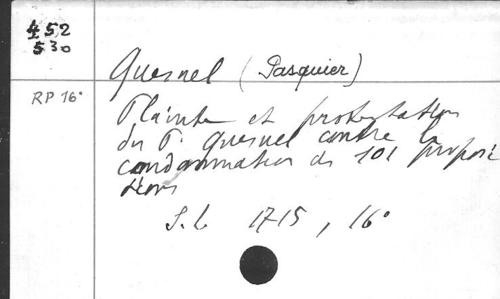 452
530
Quesnel (Pasquier)
RP 16°
Plainte et protestation
du P. Quesnel contre la
condamnation des 101 proposi
tions
S.l. 1715, 16°